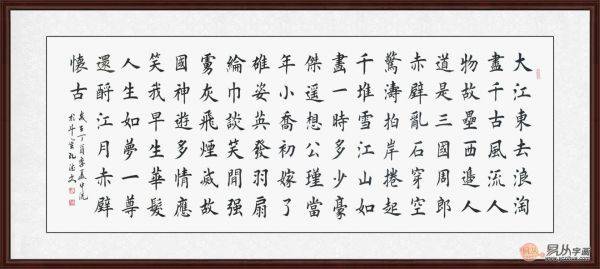 大江東去浪淘
盡千古風流人
物故壘西邊人
道是三國周郎
赤壁亂石穿空
驚濤拍岸捲起
千堆雪江山如
畫一時多少豪
傑遥想公瑾當
年小喬初嫁了
雄姿英發羽扇
綸巾談笑間强
虜灰飛煙滅故
國神遊多情應
笑我早生華髮
人生如夢一尊
還酹江月赤壁
懷古
歲在丁酉季夏中浣
於斗室
易从字画